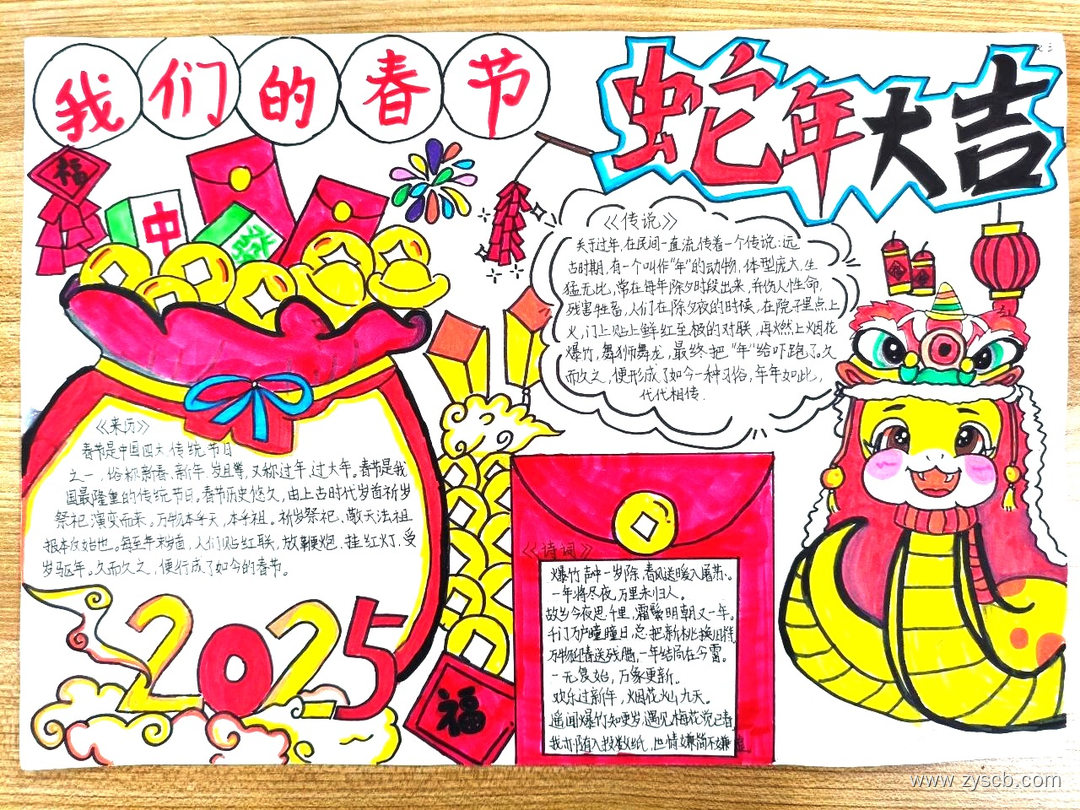 我们的春节
蛇年大吉
福
中
發
《传说》
关于过年,在民间一直流传着一个传说:远
古时期,有一个叫作"年"的动物,体型庞大,生
猛无比,常在每年除夕时段出来,并伤人性命,
残害牲畜,人们在除夕夜的时候,在院子里点上
火,门上贴上鲜红至极的对联,再燃上烟花
爆竹,舞狮舞龙,最终把"年"给吓跑了。久
而久之,便形成了如今一种习俗,年年如此,
代代相传.
《来历》
春节是中国四大传统节日
之一,俗称新春、新年、岁旦等,又称过年、过大年。春节是我
国最隆重的传统节日。春节历史悠久,由上古时代岁首祈岁
祭祀演变而来。万物本乎天,本乎祖。祈岁祭祀、敬天法祖
报本反始也。每至年末岁首,人们贴红联,放鞭炮、挂红灯、受
岁驱年。久而久之,便行成了如今的春节。
《诗词》
爆竹声中一岁除,春风送暖入屠苏。
一年将尽夜,万里未归人。
故乡今夜思千里,霜鬓明朝又一年。
千门万户曈曈日,总把新桃换旧符
万物迎春送残腊,一年结局在今宵。
一元复始,万象更新。
欢乐过新年,烟花火九天。
遥闻爆竹知更岁,遇见梅花觉已春
我亦随人投数纸,世情嫌简不嫌
2025
福
www.zyscb.com